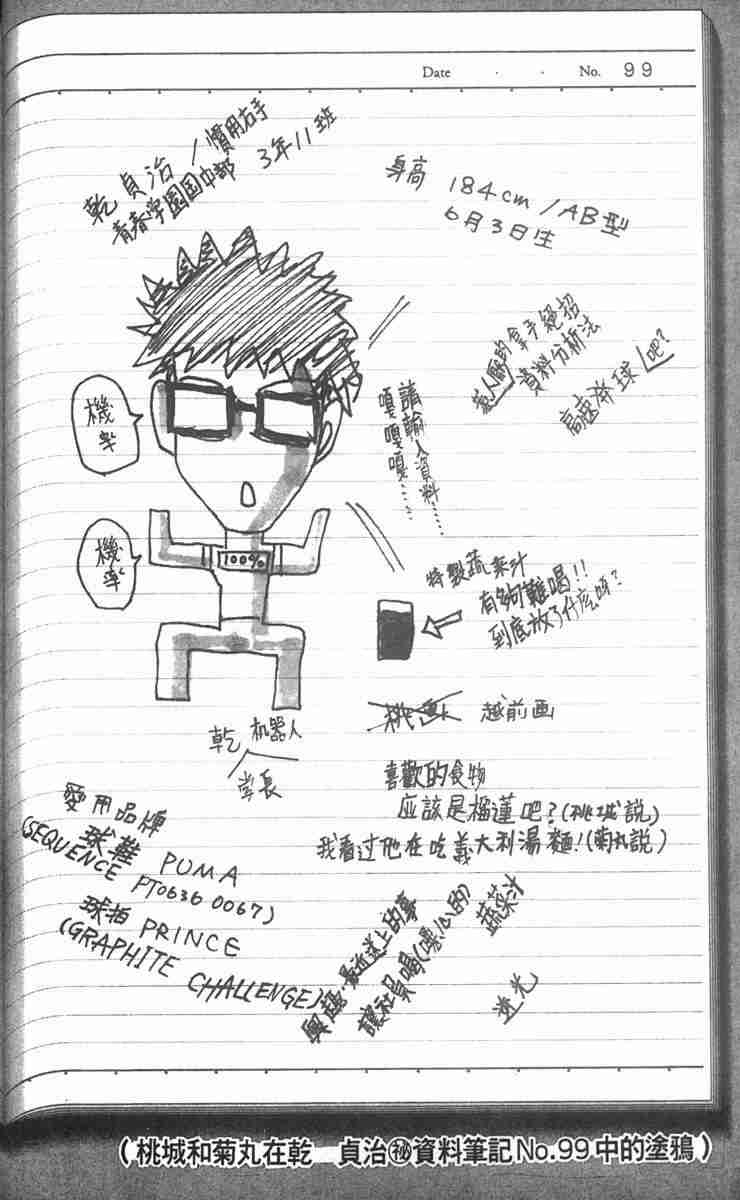 Date . . No. 99
乾貞治/慣用右手
青春学園国中部 3年11班
身高 184cm/AB型
6月3日生
拿手絕招
資料分析法
高速發球 吧?
機率
請輸入資料……
嘎嘎嘎嘎……
機率
100%
特製蔬菜汁
有夠難喝!!
到底放了什么呀?
越前画
乾 机器人
学長
喜歡的食物
应該是榴蓮吧?(桃城説)
我看过他在吃義大利湯麵!(菊丸説)
愛用品牌
球鞋 PUMA
(SEQUENCE PT0636 0067)
球拍 PRINCE
(GRAPHITE CHALLENGE)
興趣・最近迷上的事
讓社員喝(噁心的)
蔬菜汁
透光
(桃城和菊丸在乾 貞治㊙資料筆記No.99中的塗鴉)